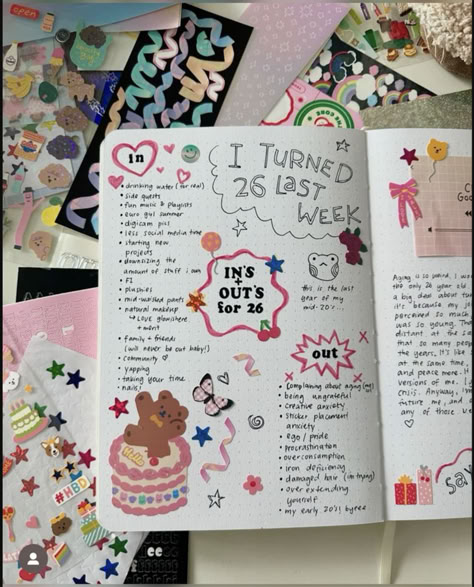 open
in
• drinking water (for real)
• side quests
• fun music & playlists
• euro girl summer
• digicam pics
• less social media time
• starting new
projects
• downsizing the
amount of stuff i own
• F1
• plushies
• mid-waisted pants
• natural makeup
↳ LOVE glowishere
+ merit
• family + friends
(will never be out baby!)
• community
• yapping
• taking your time
• nails!
I TURNED
26 LAST
WEEK
IN'S
+
OUT'S
for 26
this is the last
year of my
mid-20's..
out
• complaining about aging (me)
• being ungrateful
• creative anxiety
• sticker placement
anxiety
• ego / pride
• procrastination
• overconsumption
• iron deficiency
• damaged hair (im trying)
• over extending
yourself
• my early 20's! byeee
Hello
#HBD
Aging is so weird. I was
the only 26 year old
a big deal about the
it's because my
perceived so much
was so young. The
distant at the same
that so many people
the years, it's like
at the same time,
and peace more. H
versions of me.
Chsii. Anyway, I'm
future me, and
any of those
sa